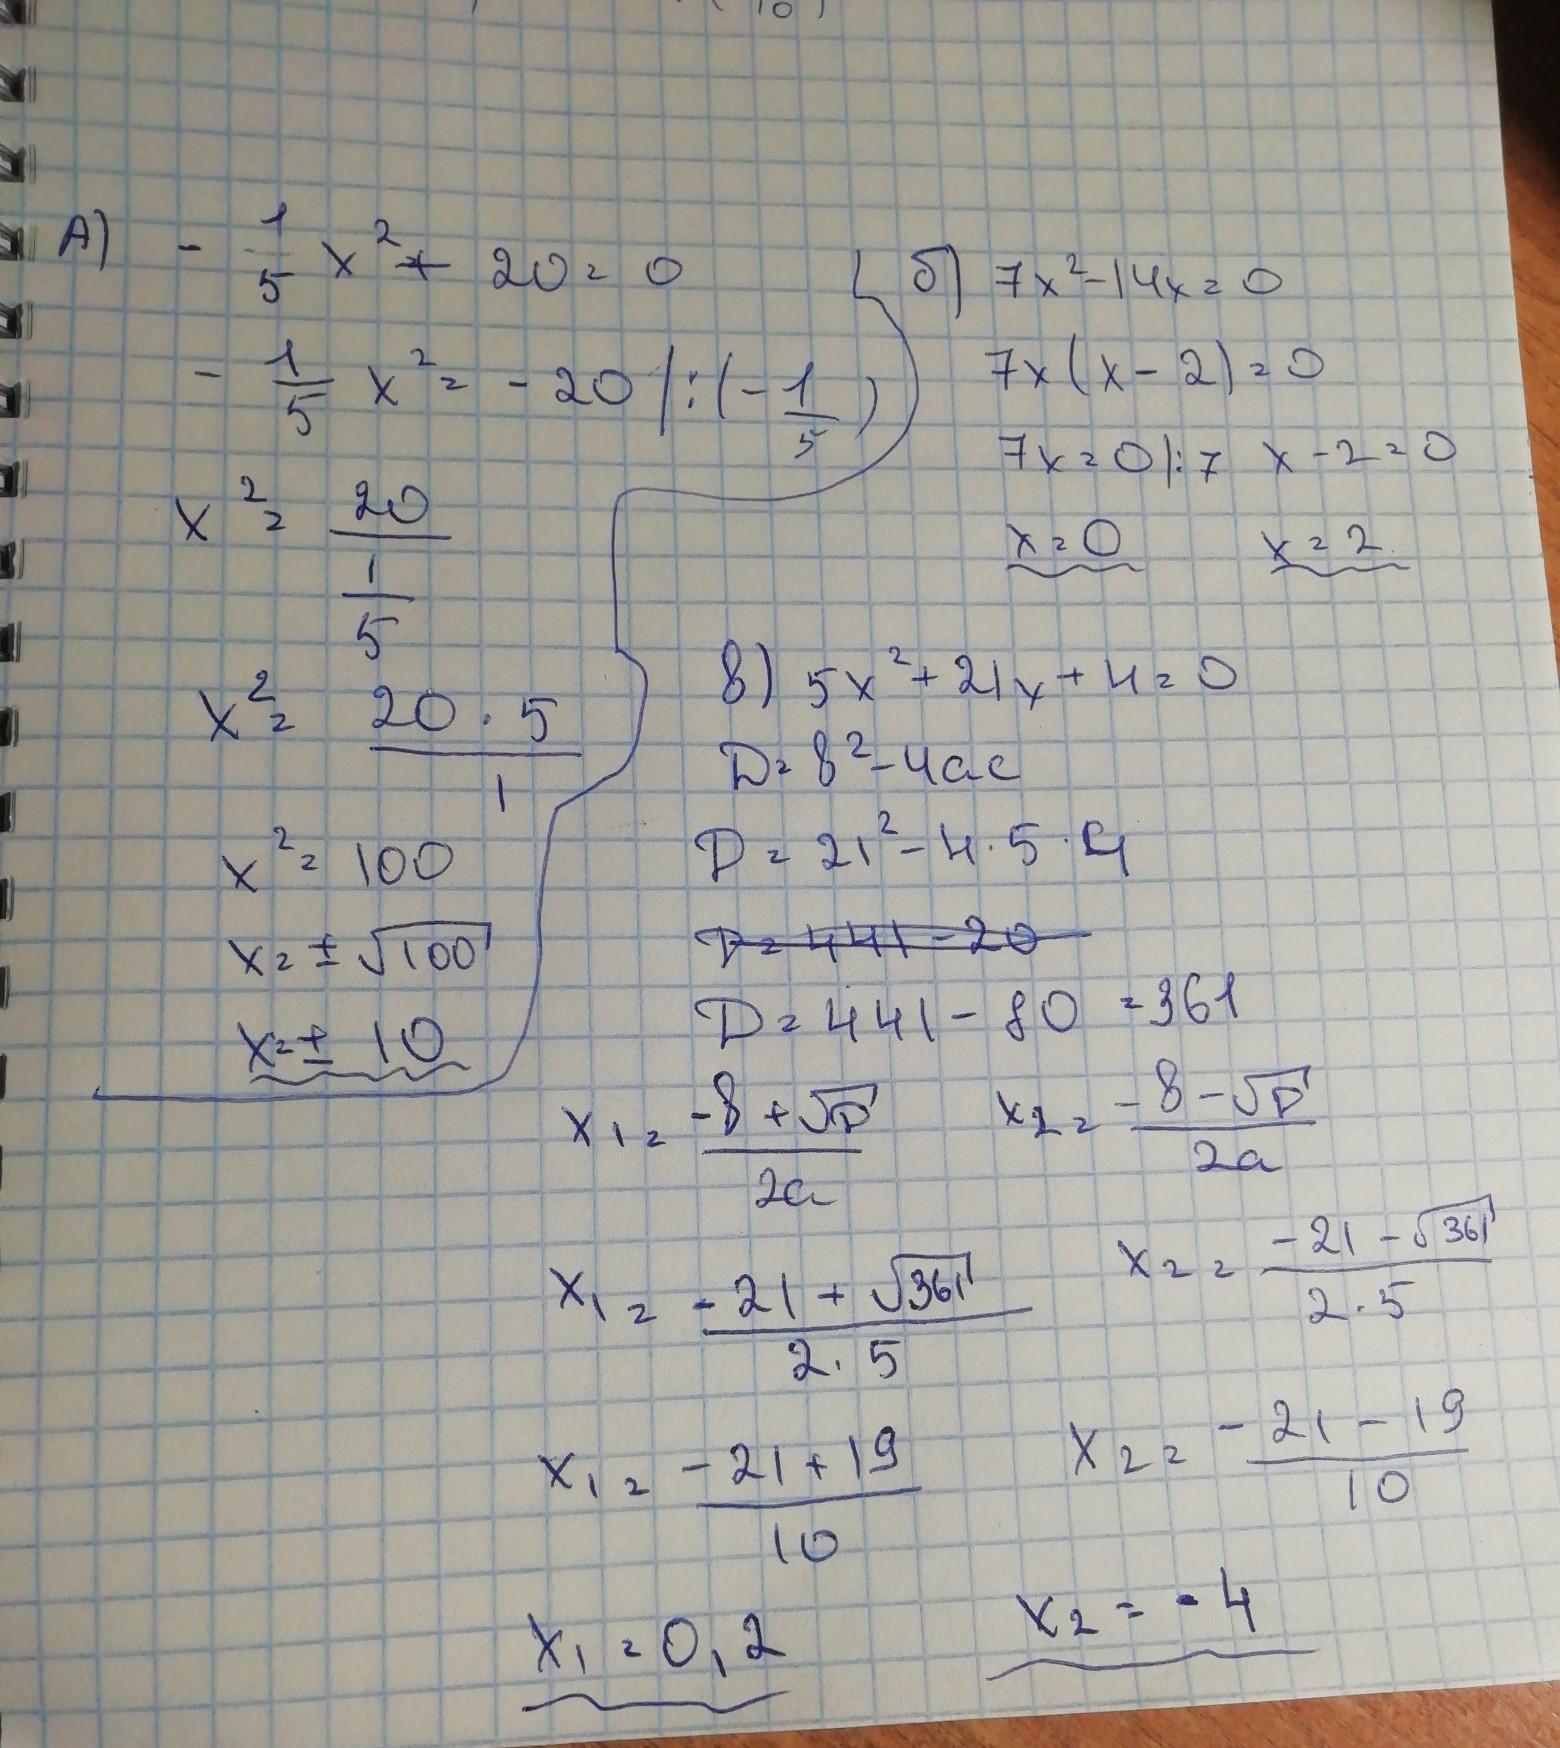 А) - 1/5 x² + 20 = 0
- 1/5 x² = - 20 |:(- 1/5)
x² = 20 / (1/5)
x² = (20 · 5) / 1
x² = 100
x = ± √100
x = ± 10
б) 7x² - 14x = 0
7x(x - 2) = 0
7x = 0 |:7 x - 2 = 0
x = 0 x = 2
в) 5x² + 21x + 4 = 0
D = в² - 4ac
D = 21² - 4 · 5 · 4
D = 441 - 20
D = 441 - 80 = 361
x₁ = (-в + √D) / 2a x₂ = (-в - √D) / 2a
x₁ = (-21 + √361) / (2 · 5) x₂ = (-21 - √361) / (2 · 5)
x₁ = (-21 + 19) / 10 x₂ = (-21 - 19) / 10
x₁ = 0,2 x₂ = - 4